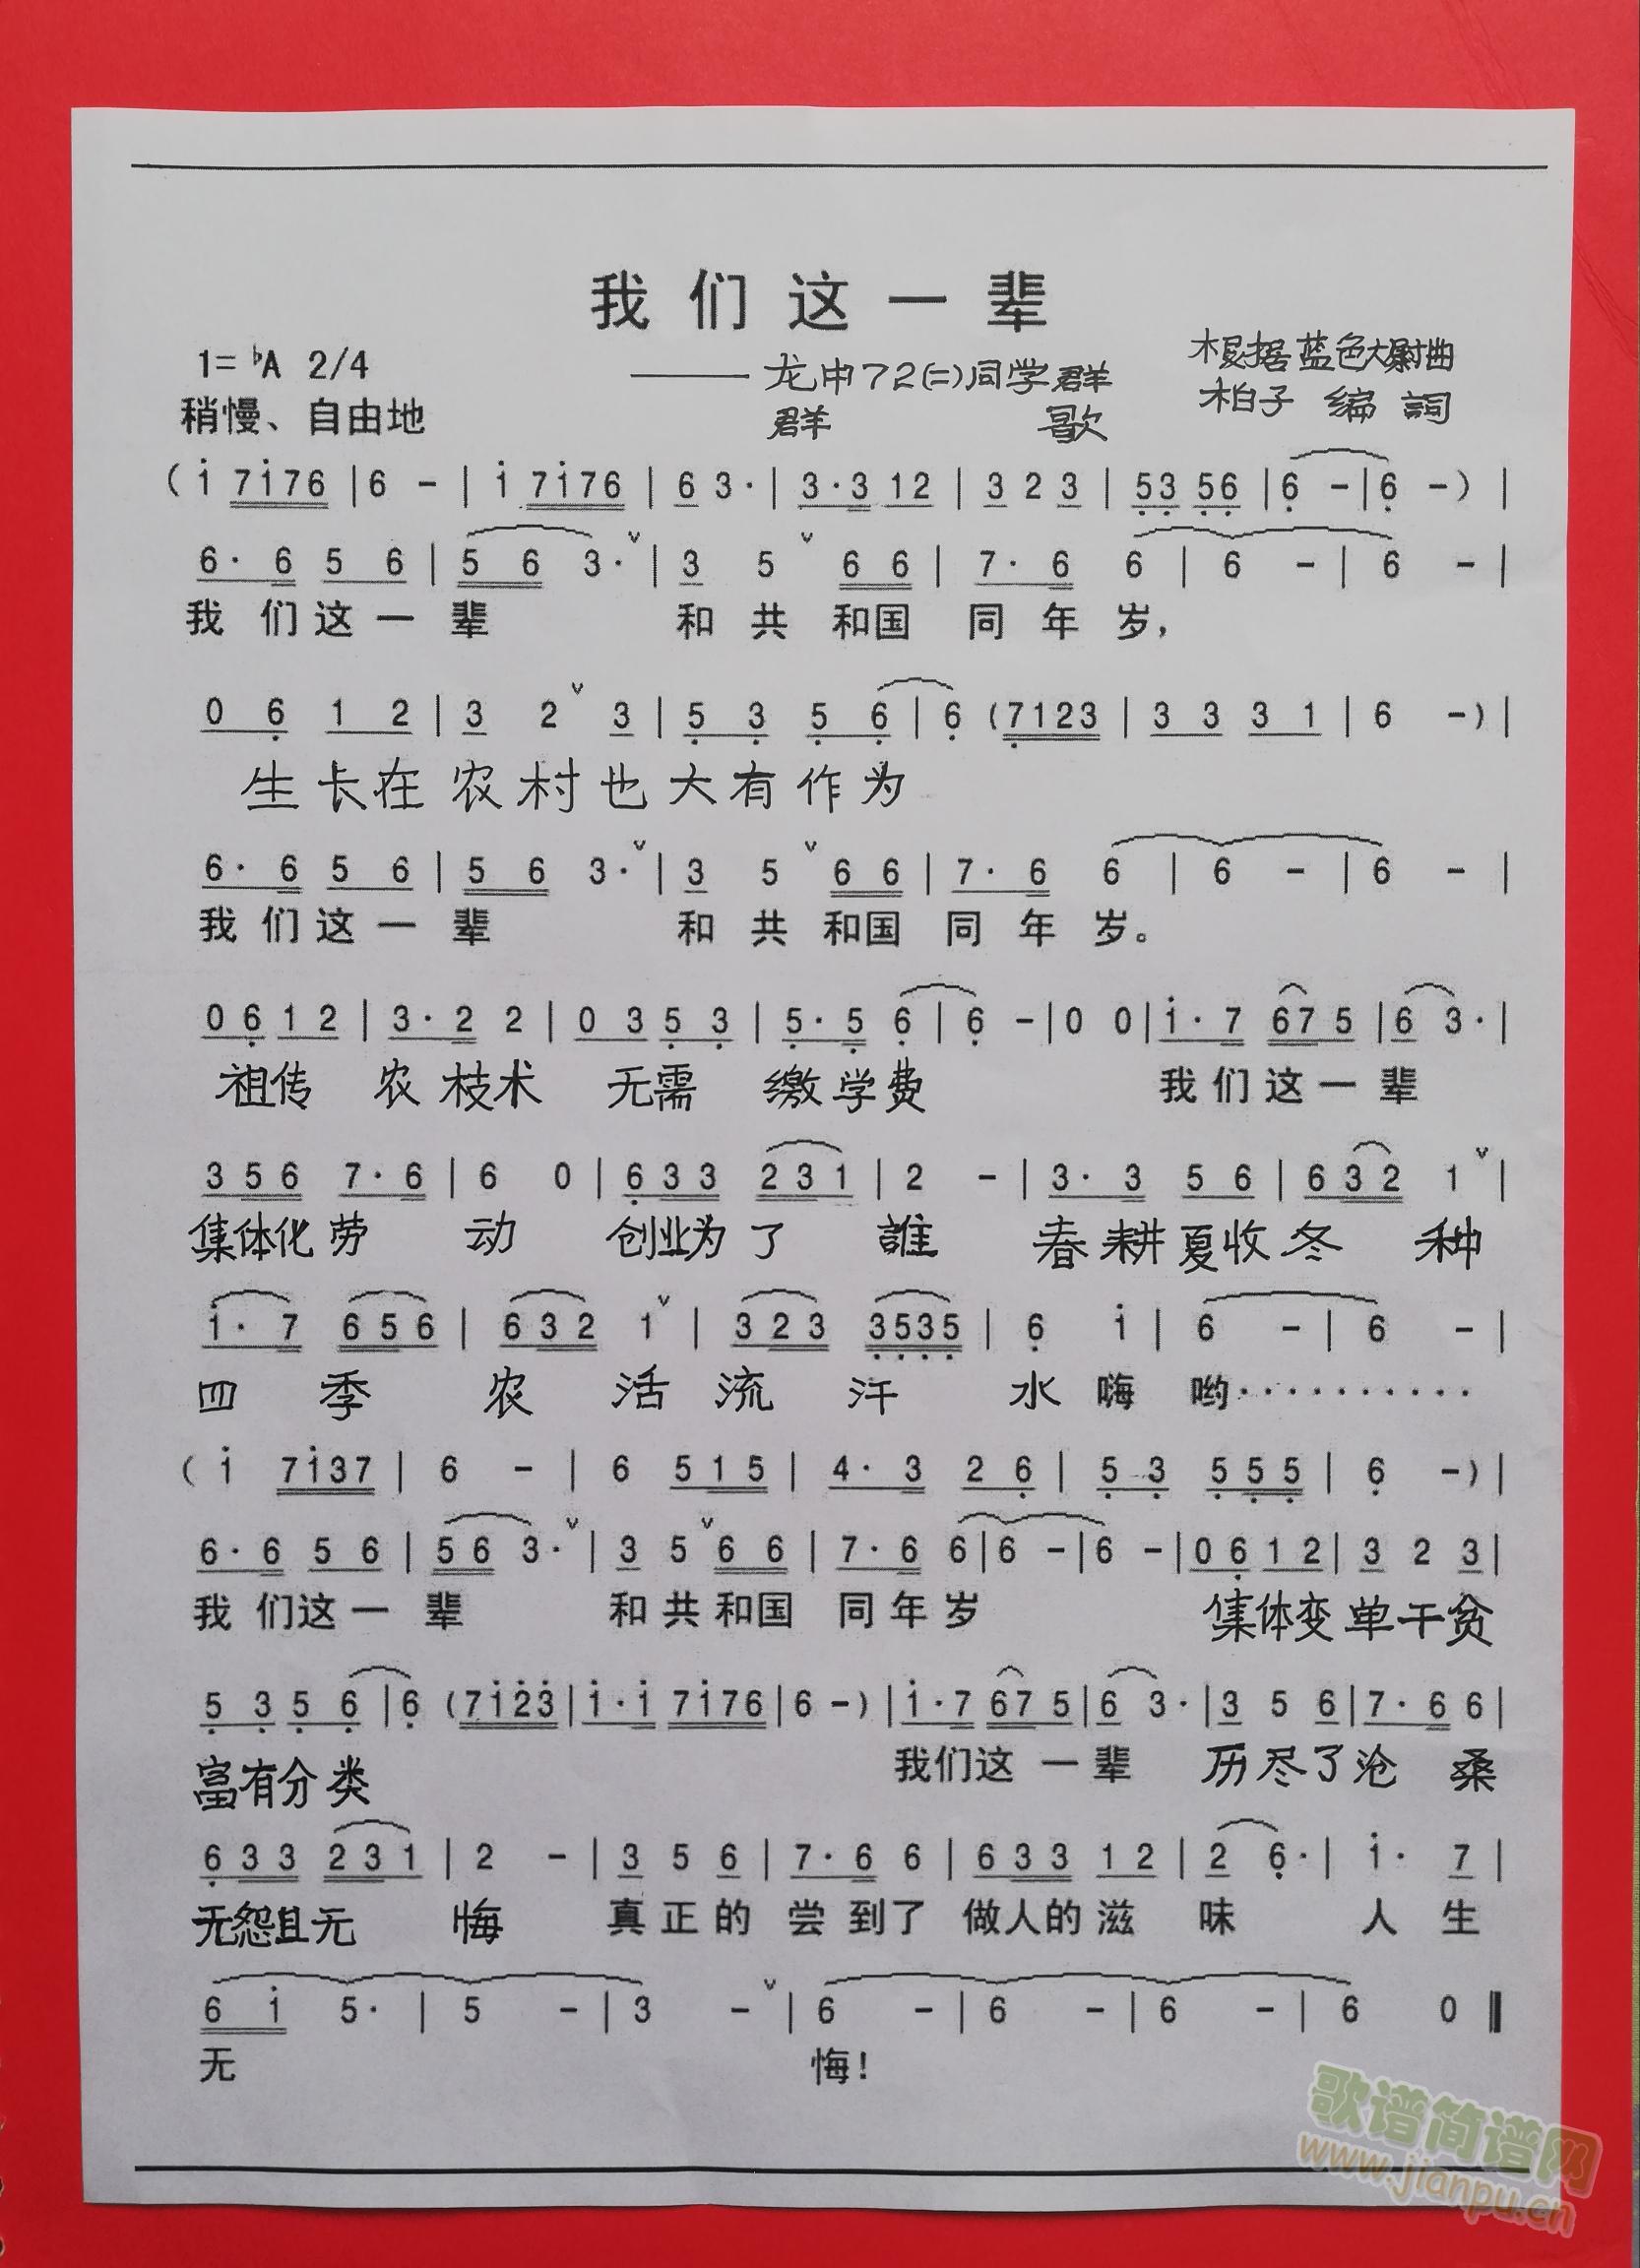 我们这一辈
1=♭A 2/4
——龙中72(二)同学群
根据蓝色大尉曲
稍慢、自由地
群 歌
柏子 编 詞
( i 7i76 | 6 - | i 7i76 | 6 3· | 3·3 12 | 3 2 3 | 53 56 | 6 - | 6 - ) |
6· 6 5 6 | 5 6 3· ∨ | 3 5 ∨ 6 6 | 7· 6 6 | 6 - | 6 - |
我 们 这 一 辈 和 共 和国 同 年 岁,
0 6 1 2 | 3 2 ∨ 3 | 5 3 5 6 | 6 (7123 | 3 3 3 1 | 6 -) |
生卡在农村也大有作为
6· 6 5 6 | 5 6 3· ∨ | 3 5 ∨ 6 6 | 7· 6 6 | 6 - | 6 - |
我 们 这 一 辈 和 共 和国 同 年 岁。
0 6 1 2 | 3· 2 2 | 0 3 5 3 | 5· 5 6 | 6 - | 0 0 | i· 7 67 5 | 6 3· |
祖传 农 技术 无需 缴学费 我 们 这 一 辈
3 5 6 7· 6 | 6 0 | 6 3 3 2 3 1 | 2 - | 3· 3 5 6 | 6 3 2 1 ∨ |
集体化 劳 动 创业为 了 誰 春耕夏收冬 种
i· 7 6 5 6 | 6 3 2 1 ∨ | 3 2 3 3535 | 6 i | 6 - | 6 - |
四 季 农 活 流 汗 水 嗨 哟··········
( i 7i37 | 6 - | 6 5 1 5 | 4· 3 2 6 | 5 3 5 5 5 | 6 -) |
6· 6 5 6 | 5 6 3· ∨ | 3 5 ∨ 6 6 | 7· 6 6 | 6 - | 6 - | 0 6 1 2 | 3 2 3 |
我 们这 一 辈 和 共 和国 同 年 岁 集体变 单干贫
5 3 5 6 | 6 (7i23 | i· i 7i76 | 6 -) | i· 7 67 5 | 6 3· | 3 5 6 | 7· 6 6 |
富有分类 我们这 一 辈 历尽了沧 桑
6 3 3 2 3 1 | 2 - | 3 5 6 | 7· 6 6 | 6 3 3 1 2 | 2 6· | i· 7 |
无怨且无 悔 真 正 的 尝 到了 做人的 滋 味 人 生
6 i 5· | 5 - | 3 - ∨ | 6 - | 6 - | 6 - | 6 0 ‖
无 悔!
歌谱简谱网
www.jianpu.cn